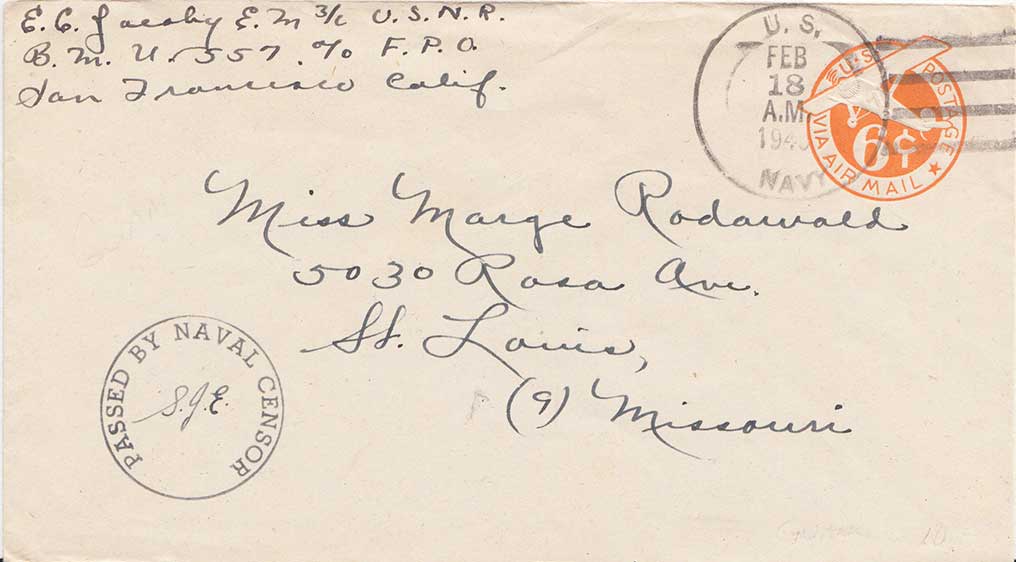 E. C. Jacoby E.M 3/c U.S.N.R.
B. M. U. 557. c/o F. P. O.
San Francisco Calif.
U. S.
FEB
18
A.M.
NAVY
U.S. POSTAGE
6¢
VIA AIR MAIL
Miss Marge Rodawald
5030 Rosa Ave.
St. Louis,
(9) Missouri
PASSED BY NAVAL CENSOR
S.J.E.
10